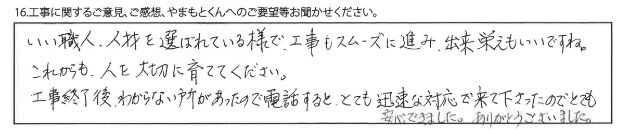 16.工事に関するご意見、ご感想、やまもとくんへのご要望等お聞かせください。
いい職人、人材を選ばれている様で、工事もスムーズに進み、出来栄えもいいですね。
これからも、人を大切に育ててください。
工事終了後、わからない所があったので電話すると、とても迅速な対応で来て下さったのでとても
安心できました。ありがとうございました。